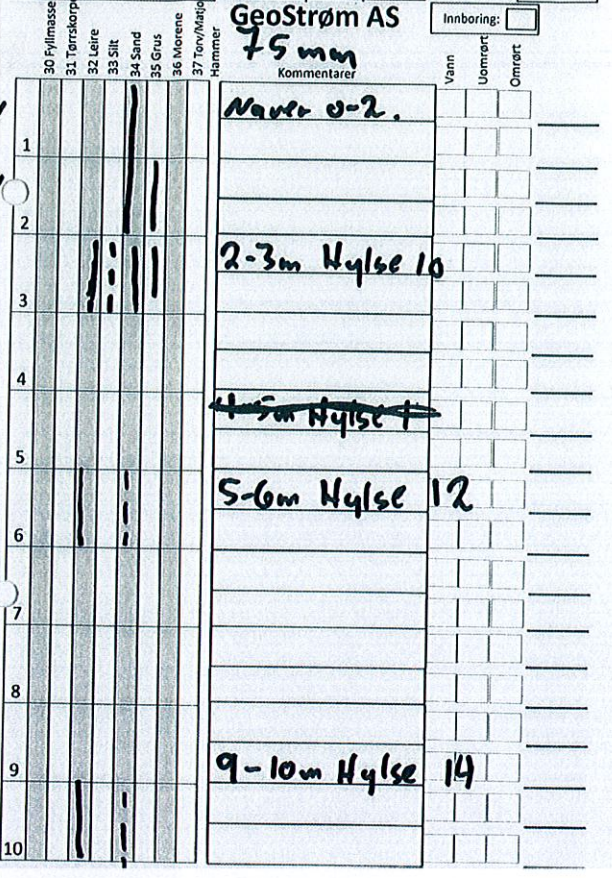 GeoStrøm AS
Innboring:
75 mm
30 Fyllmasse
31 Tørrskorpe
32 Leire
33 Silt
34 Sand
35 Grus
36 Morene
37 Torv/Matjo
Hammer
Kommentarer
Vann
Uomrørt
Omrørt
Naver 0-2.
1
2
2-3m Hylse 10
3
4
4-5m Hylse 1
5
5-6m Hylse 12
6
7
8
9
9-10m Hylse 14
10